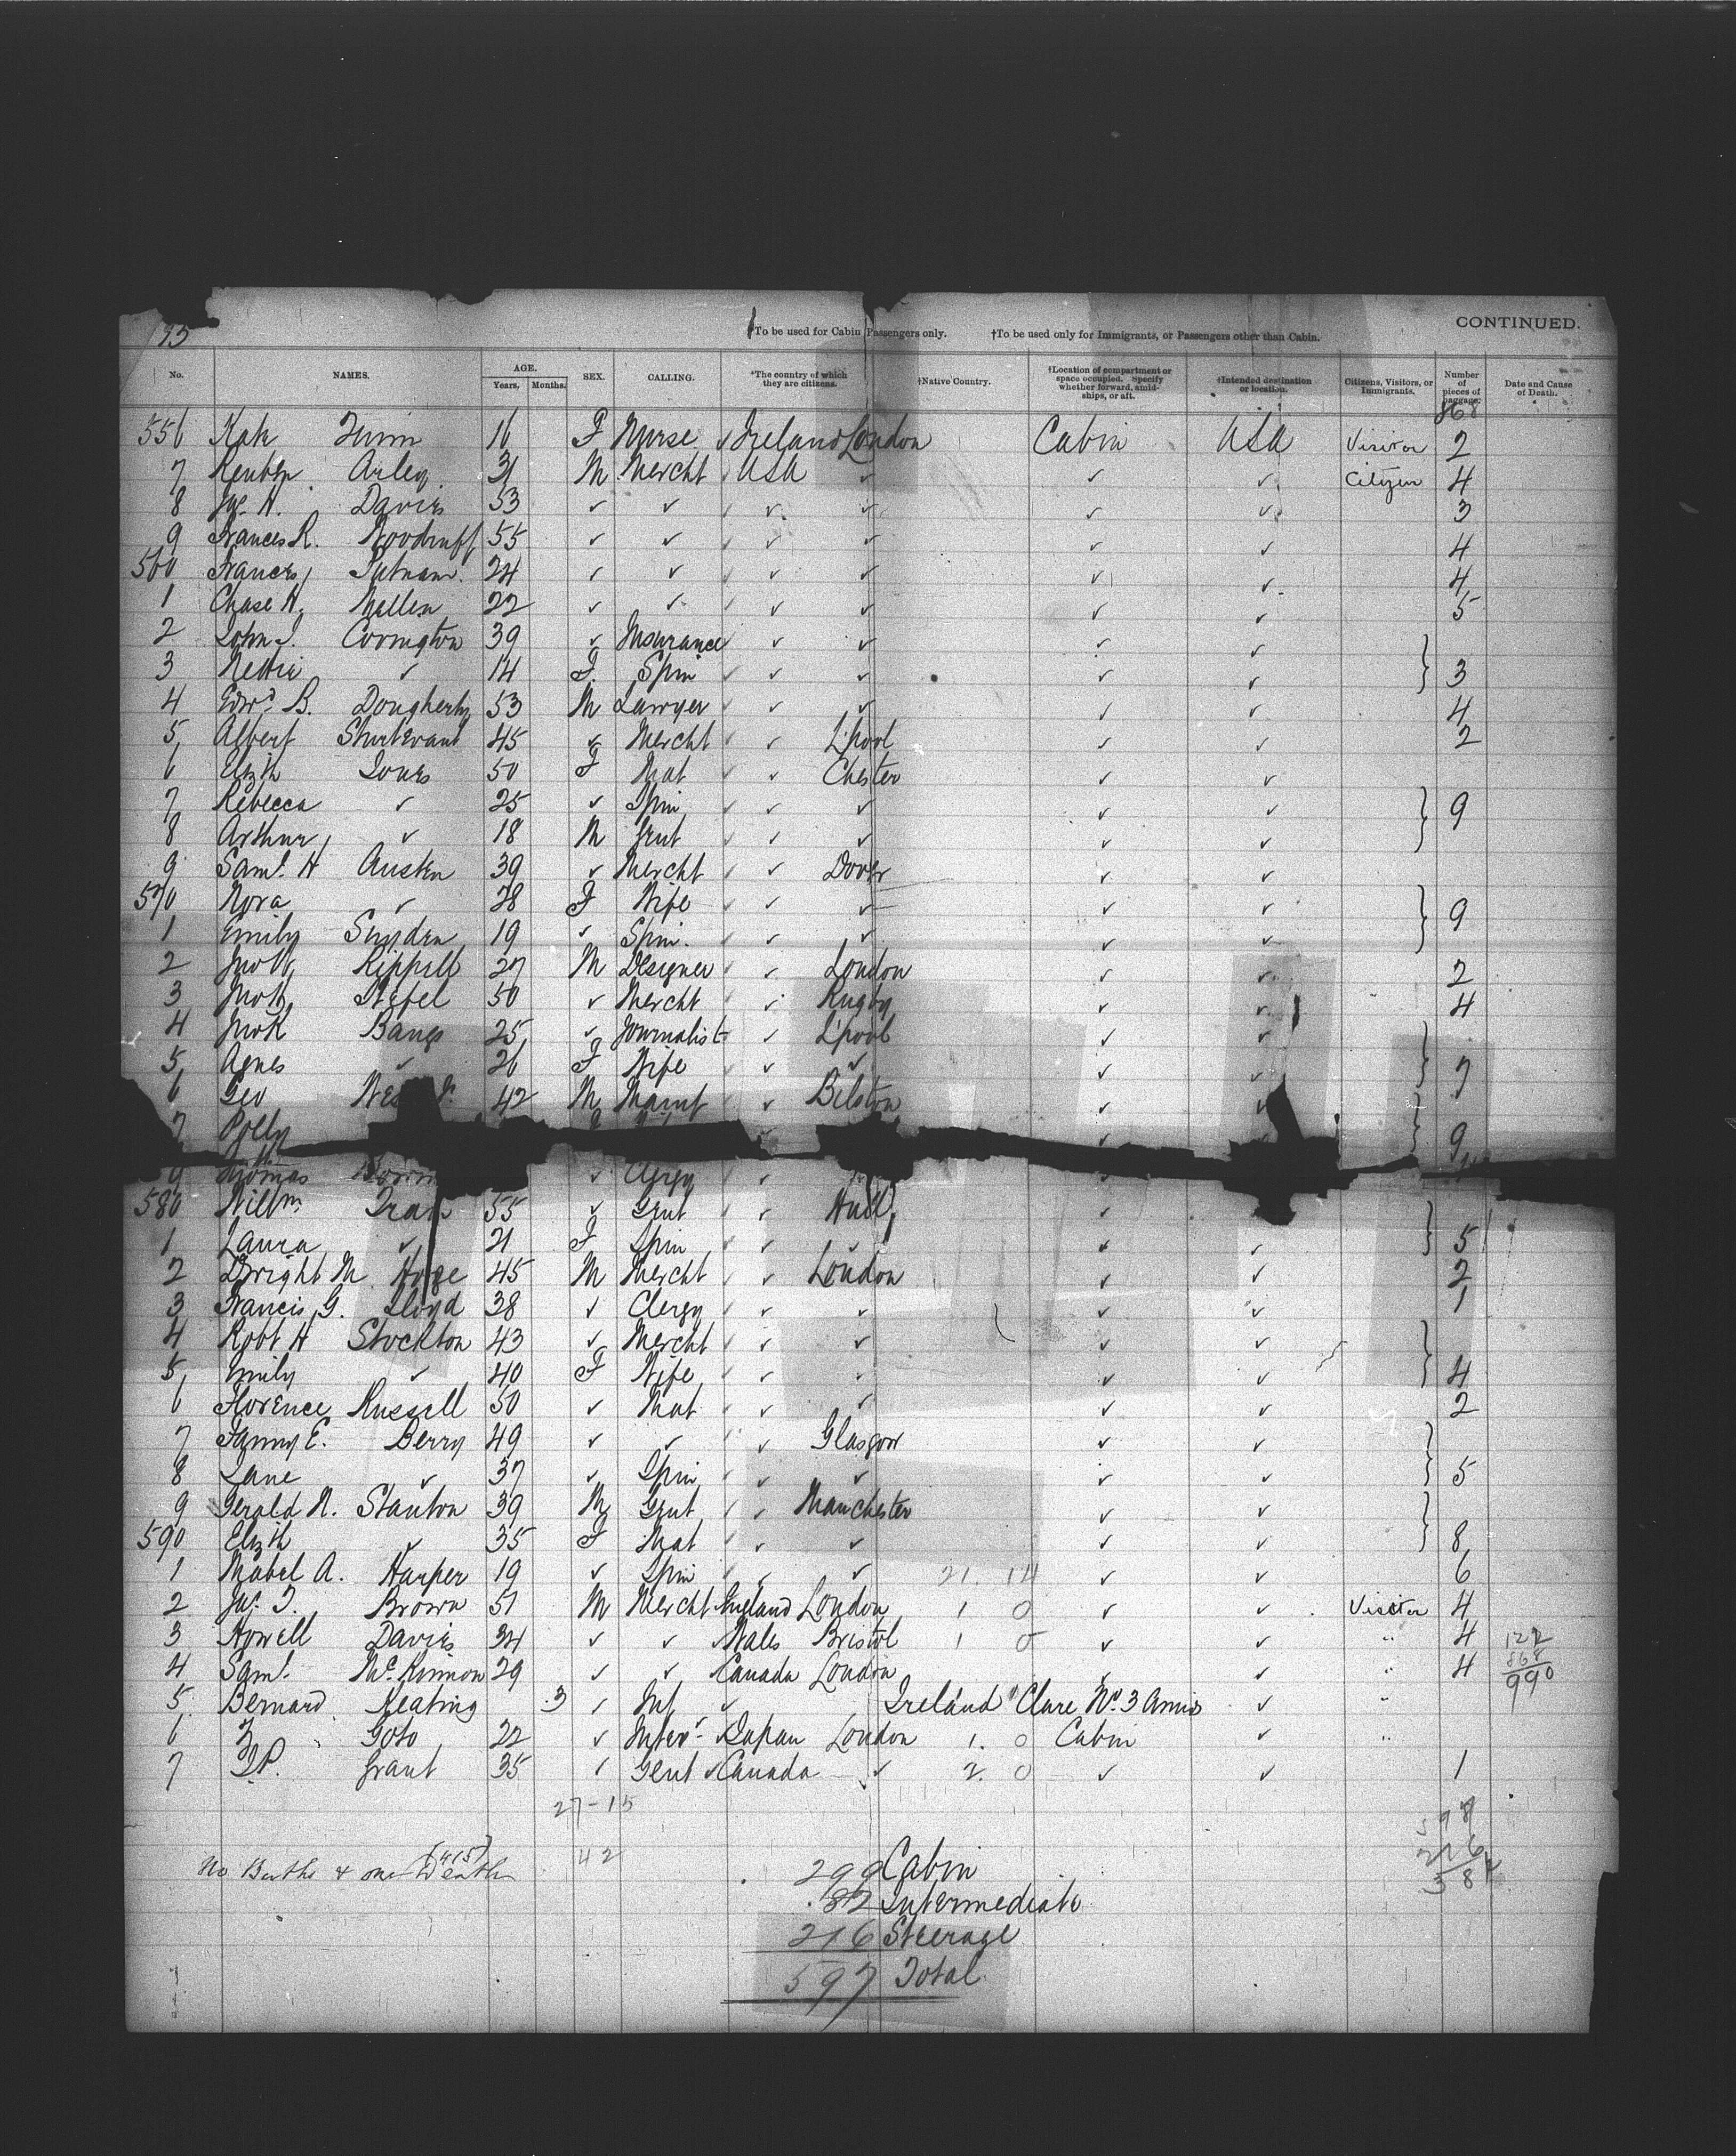 93
*To be used for Cabin Passengers only. †To be used only for Immigrants, or Passengers other than Cabin. CONTINUED.
No. NAMES. AGE. Years. Months. SEX. CALLING. *The country of which they are citizens. †Native Country. †Location of compartment or space occupied. Specify whether forward, amidships, or aft. †Intended destination or location. Citizens, Visitors, or Immigrants. Number of pieces of baggage. Date and Cause of Death.
868
556 Kate 16 F Nurse ✓ Ireland London Cabin USA Visitor 2
7 Reuben 31 M Mercht ✓ USA ✓ ✓ ✓ Citizen 4
8 Jas. H. Davies 53 ✓ ✓ ✓ ✓ ✓ ✓ ✓ 3
9 Frances R. Woodruff 55 ✓ ✓ ✓ ✓ ✓ ✓ ✓ 4
560 Frances Putnam 24 ✓ ✓ ✓ ✓ ✓ ✓ ✓ 4
1 Chase H. Mellen 22 ✓ ✓ ✓ ✓ ✓ ✓ ✓ 5
2 John I. Covington 39 ✓ Insurance ✓ ✓ ✓ ✓ ✓
3 Nettie ✓ 14 F. Spin ✓ ✓ ✓ ✓ ✓ 3
4 Edwd. B. Dougherty 53 M Lawyer ✓ ✓ ✓ ✓ ✓ 4
5 Albert Sturtevant 45 ✓ Mercht ✓ ✓ L'pool ✓ ✓ 2
6 Elizth Jones 50 F Mat ✓ ✓ Chester ✓ ✓
7 Rebecca ✓ 25 ✓ Spin ✓ ✓ ✓ ✓ ✓ 9
8 Arthur ✓ 18 M Gent ✓ ✓ ✓ ✓ ✓
9 Saml. H Austen 39 ✓ Mercht ✓ ✓ Dover ✓ ✓
570 Nora ✓ 28 F Wife ✓ ✓ ✓ ✓ ✓ 9
1 Emily Suyden 19 ✓ Spin. ✓ ✓ ✓ ✓ ✓
2 Rippill 27 M Designer ✓ ✓ London ✓ ✓ 2
3 50 ✓ Mercht ✓ ✓ Rugby ✓ ✓ 4
4 Jno K Bangs 25 ✓ Journalist ✓ L'pool ✓ ✓
5 Agnes ✓ 26 F Wife ✓ ✓ ✓ ✓ ✓ 7
6 Geo 42 M Manuf ✓ ✓ Bilston ✓
7 Polly ✓ 9
9 Thomas ✓ Clergy ✓ ✓
580 Willm. 55 ✓ Gent ✓ ✓ Hull ✓
1 Laura ✓ 21 F Spin ✓ ✓ ✓ ✓ ✓ 5
2 Dwight M 45 M Mercht ✓ ✓ London ✓ ✓ 2
3 Francis G. Lloyd 38 ✓ Clergy ✓ ✓ ✓ ✓ ✓ 1
4 Robt H Stockton 43 ✓ Mercht ✓ ✓ ✓ ✓ ✓
5 Emily ✓ 40 F Wife ✓ ✓ ✓ ✓ ✓ 4
6 Florence Russell 50 ✓ Mat ✓ ✓ ✓ ✓ ✓ 2
7 Fanny E. Berry 49 ✓ ✓ ✓ ✓ Glasgow ✓ ✓
8 Jane ✓ 37 ✓ Spin ✓ ✓ ✓ ✓ ✓ 5
9 Gerald N. Stanton 39 M Gent ✓ ✓ Manchester ✓ ✓
590 Elizth ✓ 35 F Mat ✓ ✓ ✓ ✓ ✓ 8
1 Mabel A. Harper 19 ✓ Spin ✓ ✓ ✓ 21. 14 ✓ ✓ 6
2 Jas. T. Brown 51 M Mercht England London 1 0 ✓ ✓ Visitor 4
3 Howell Davies 34 ✓ ✓ Wales Bristol 1 0 ✓ ✓ " 4 122
4 Saml. McKinnon 29 ✓ ✓ Canada London ✓ ✓ " 4 868
990
5 Bernard Keating 3 ✓ Inf ✓ Ireland Clare No. 3 Amis ✓ "
6 Goto 22 ✓ ✓ Japan London 1. 0 Cabin ✓ "
7 Grant 35 ✓ Gent ✓ Canada ✓ 2. 0 ✓ ✓ 1
27-15
42
597
216
381
No Births & one Death (415)
299 Cabin
82 Intermediate
216 Steerage
597 Total